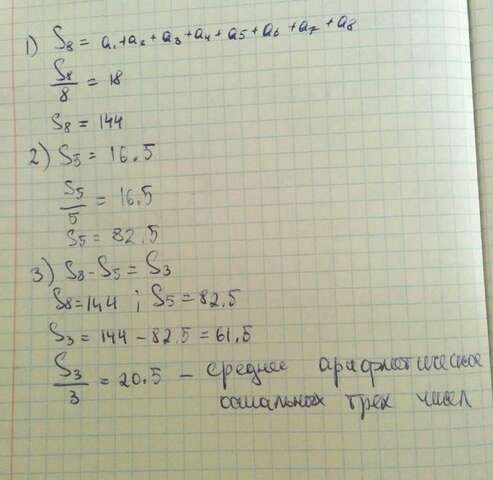 1) S8 = a1+a2+a3+a4+a5+a6+a7+a8
S8/8 = 18
S8 = 144
2) S5 = 16.5
S5/5 = 16.5
S5 = 82.5
3) S8 - S5 = S3
S8=144 ; S5=82.5
S3 = 144 - 82.5 = 61,5
S3/3 = 20.5 - среднее арифметическое
остальных трех чисел